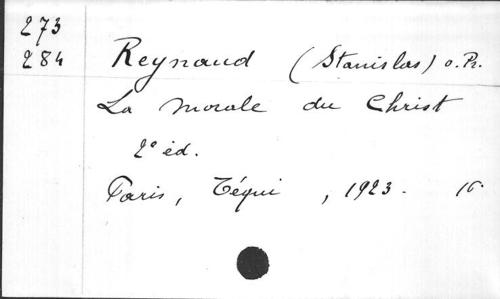 273
284
Reynaud (Stanislas) o. Pr.
La Morale du Christ
2° éd.
Paris, Téqui, 1923. 16.